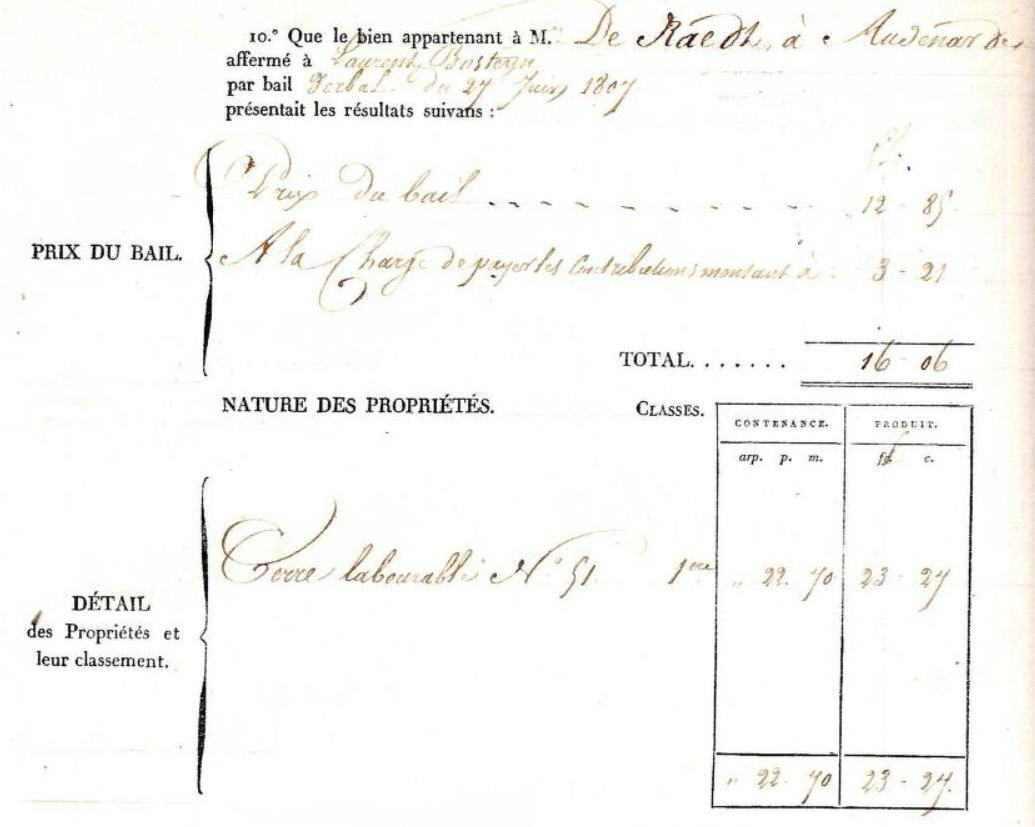 10.° Que le bien appartenant à M. De Raedt, à Audenarde
affermé à Laurent Bosteyn
par bail verbal du 27 Juin 1807
présentait les résultats suivans :
PRIX DU BAIL.
fr.
Prix du bail 12 - 85
A la Charge de payer les Contributions montant à 3 - 21
TOTAL....... 16 - 06
NATURE DES PROPRIÉTÉS. CLASSES. CONTENANCE. PRODUIT.
arp. p. m. c.
DÉTAIL
des Propriétés et
leur classement.
Terre labourable N° 51 1ere „ 22. 70 23 - 27
„ 22. 70 23 - 27.